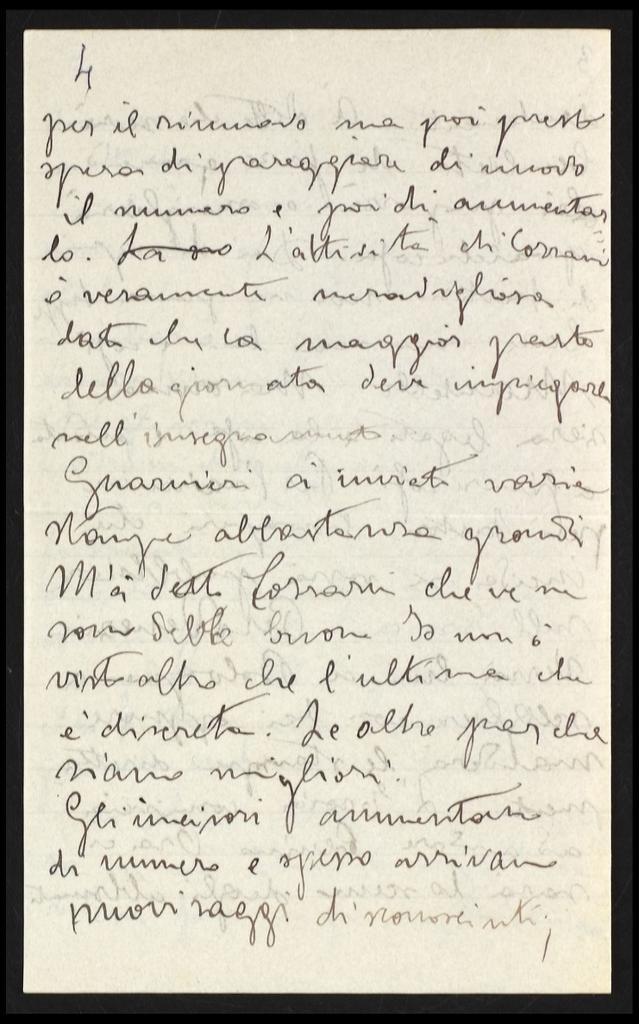 4
per il rinnovo ma poi presto
spera di pareggiare di nuovo
il numero e poi di aumentar
lo. La L'attività di Corrani
è veramente meravigliosa
dato che la maggior parte
della giornata deve impiegare
nell'insegnamento
Guarnieri à inviato varie
stampe abbastanza grandi
M'à detto che ve ne
sono delle buone Io non ò
visto altro che l'ultima che
è discreta. Le altre par che
siano migliori.
Gli incisori aumentano
di numero e spesso arrivano
nuovi saggi di sconosciuti,